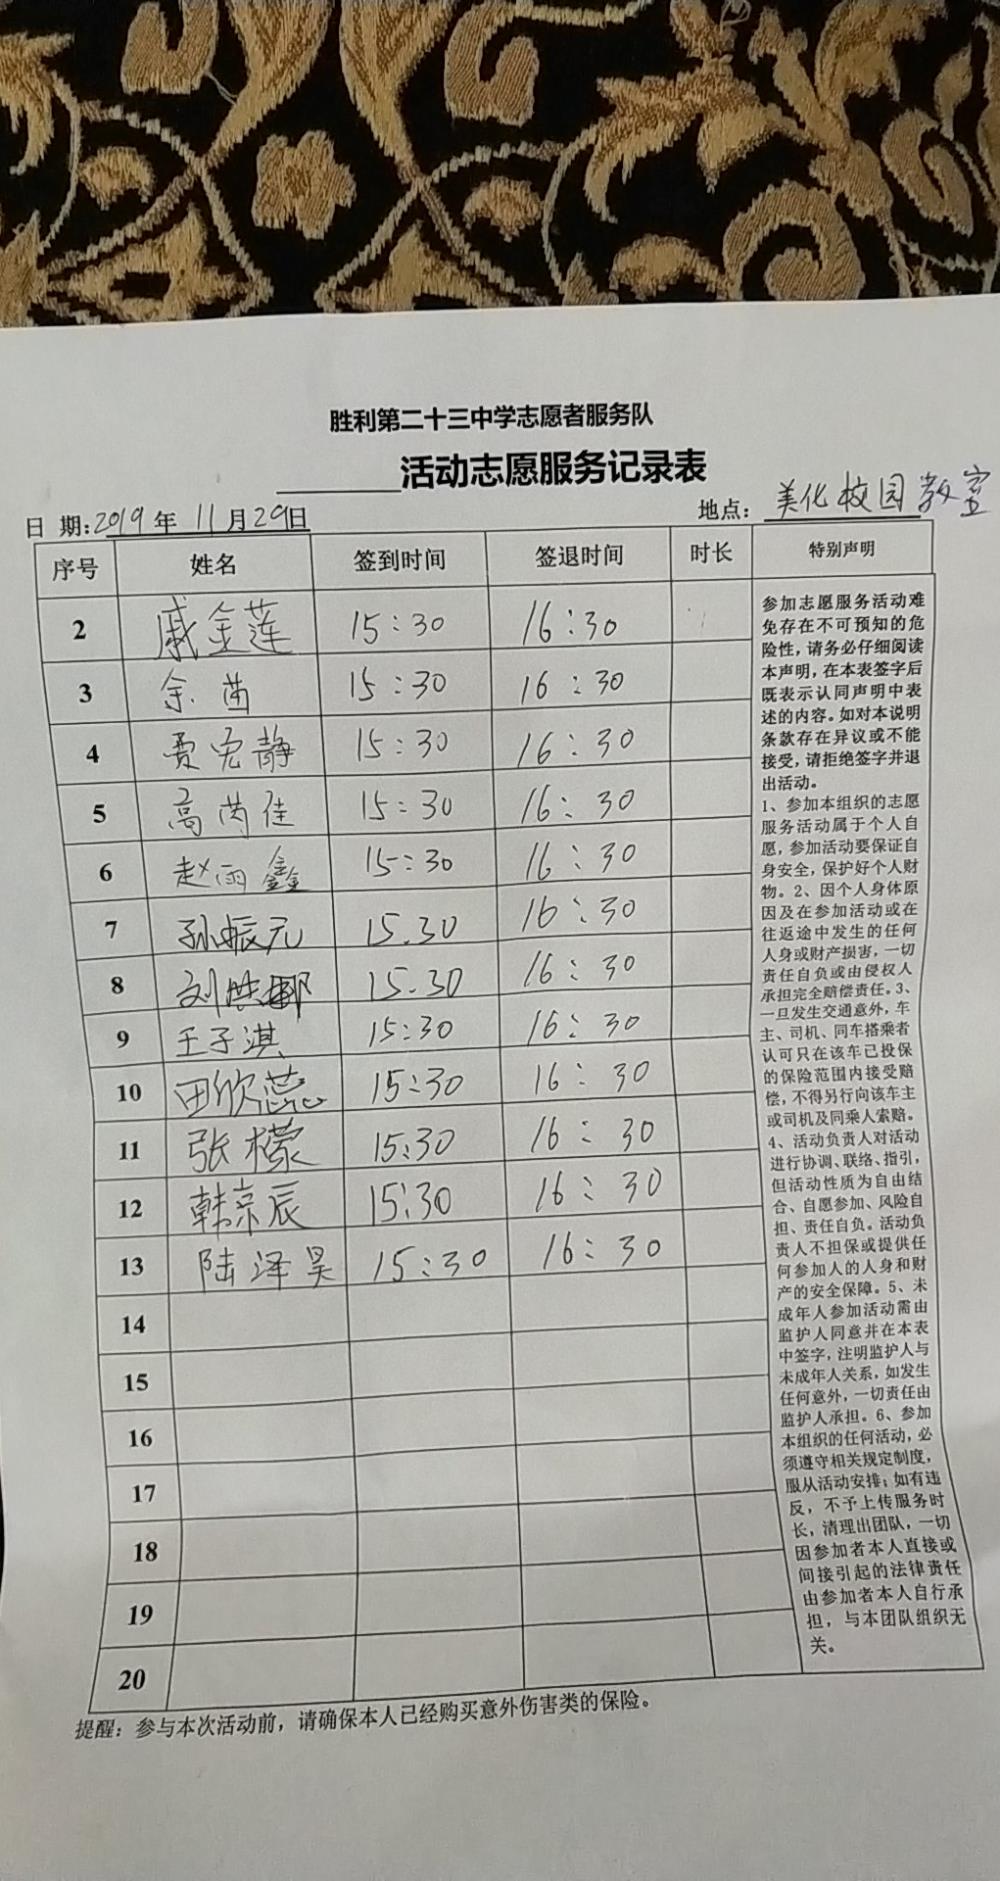 胜利第二十三中学志愿者服务队
活动志愿服务记录表
日 期:2019年 11月29日 地点: 美化校园 教室
序号 姓名 签到时间 签退时间 时长 特别声明
2 戚金莲 15:30 16:30
3 余茜 15:30 16:30
4 贾宪静 15:30 16:30
5 高芮佳 15:30 16:30
6 赵雨鑫 15:30 16:30
7 孙振元 15.30 16:30
8 刘 15.30 16:30
9 王子淇 15:30 16:30
10 田欣蕊 15:30 16:30
11 张檬 15:30 16:30
12 韩京辰 15:30 16:30
13 陆泽昊 15:30 16:30
14
15
16
17
18
19
20
参加志愿服务活动难
免存在不可预知的危
险性，请务必仔细阅读
本声明，在本表签字后
既表示认同声明中表
述的内容。如对本说明
条款存在异议或不能
接受，请拒绝签字并退
出活动。
1、参加本组织的志愿
服务活动属于个人自
愿，参加活动要保证自
身安全，保护好个人财
物。2、因个人身体原
因及在参加活动或在
往返途中发生的任何
人身或财产损害，一切
责任自负或由侵权人
承担完全赔偿责任。3、
一旦发生交通意外，车
主、司机、同车搭乘者
认可只在该车已投保
的保险范围内接受赔
偿，不得另行向该车主
或司机及同乘人索赔。
4、活动负责人对活动
进行协调、联络、指引，
但活动性质为自由结
合、自愿参加、风险自
担、责任自负。活动负
责人不担保或提供任
何参加人的人身和财
产的安全保障。5、未
成年人参加活动需由
监护人同意并在本表
中签字，注明监护人与
未成年人关系，如发生
任何意外，一切责任由
监护人承担。6、参加
本组织的任何活动，必
须遵守相关规定制度，
服从活动安排；如有违
反，不予上传服务时
长，清理出团队，一切
因参加者本人直接或
间接引起的法律责任
由参加者本人自行承
担，与本团队组织无
关。
提醒：参与本次活动前，请确保本人已经购买意外伤害类的保险。